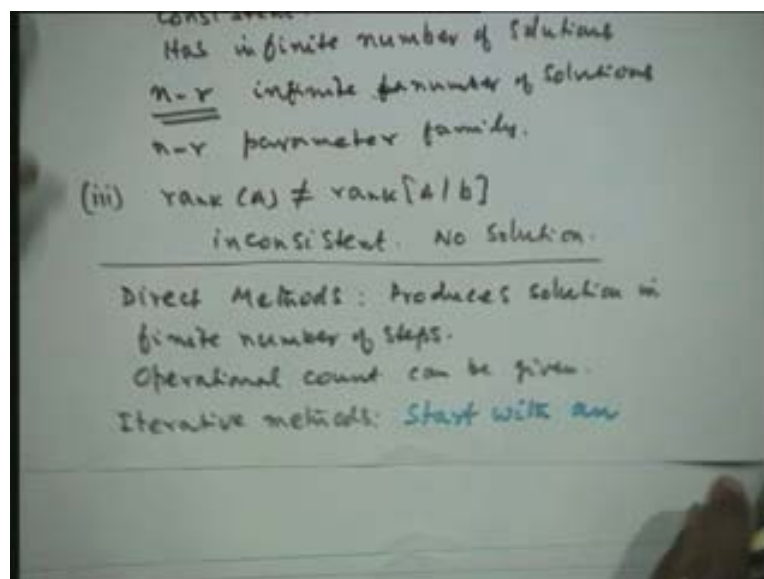 Has infinite number of solutions
n-r infinite number of solutions
n-r parameter family.
(iii) rank (A) ≠ rank [A/b]
inconsistent. No solution.
Direct Methods: Produces solution in
finite number of steps.
Operational count can be given.
Iterative methods: Start with an